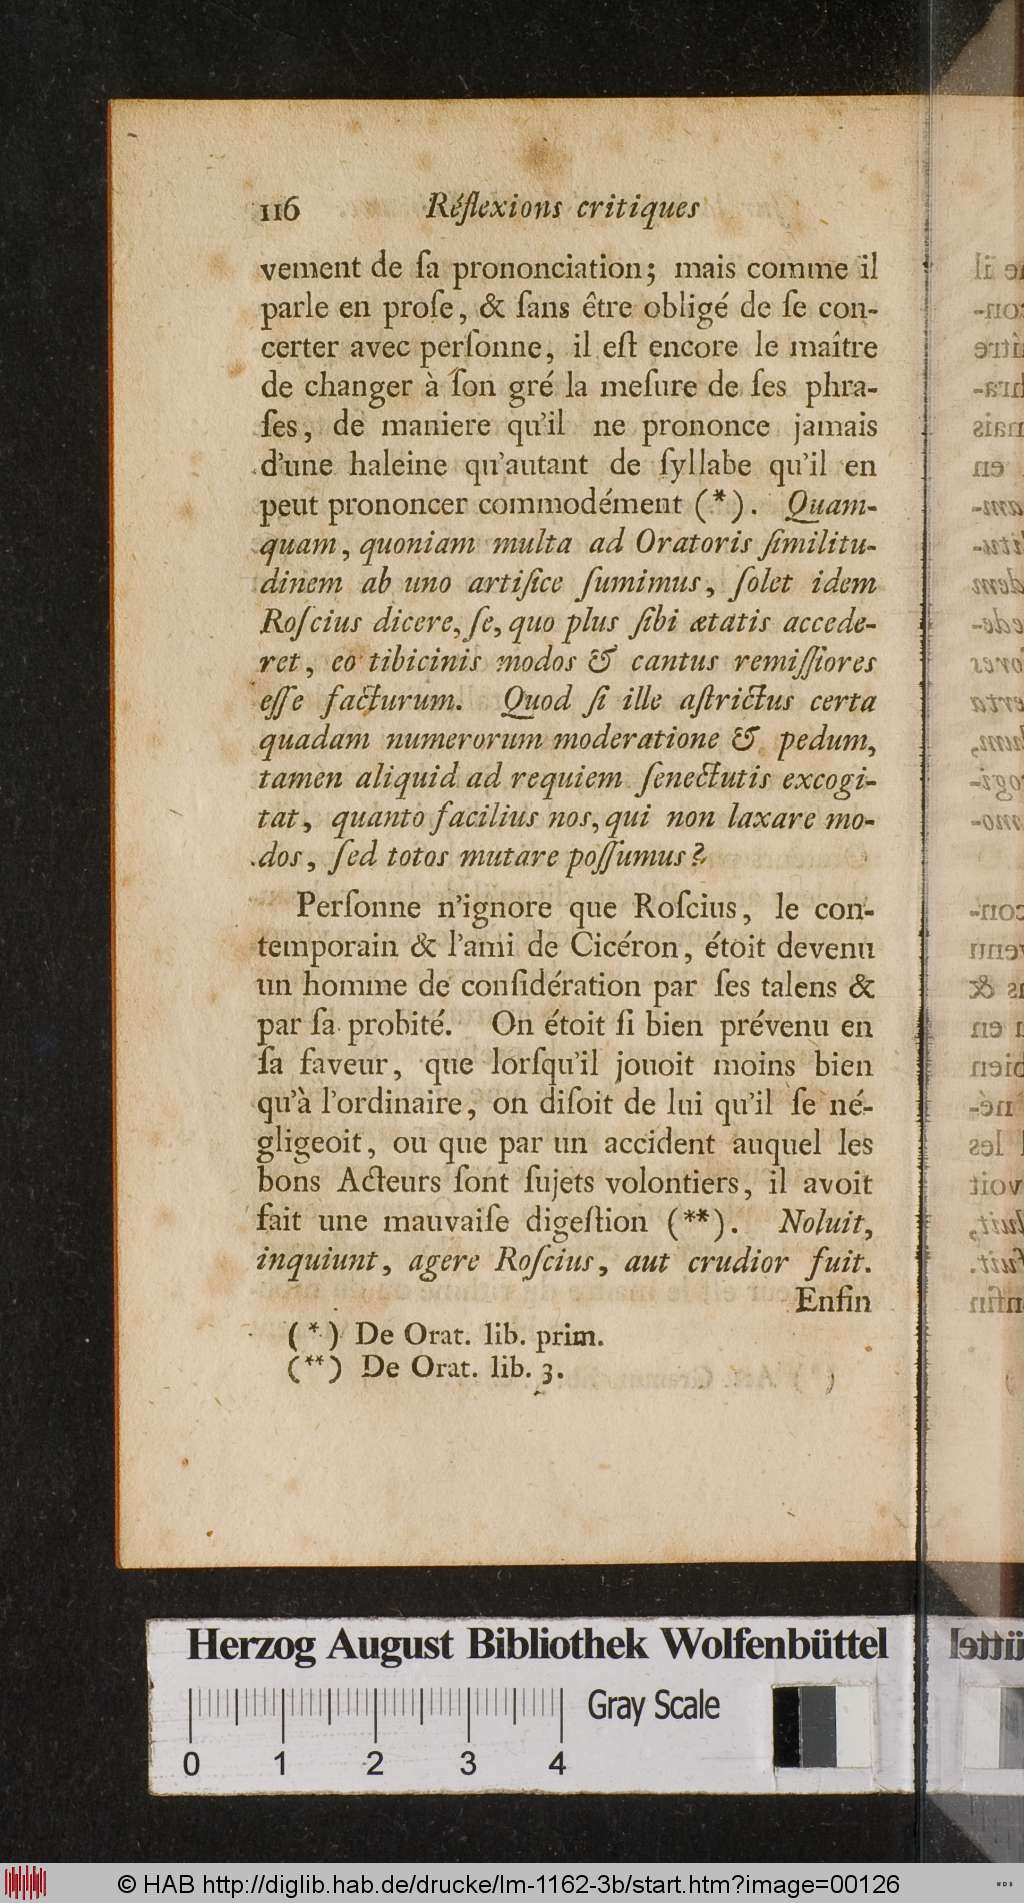 116 Réflexions critiques
vement de ſa prononciation; mais comme il
parle en proſe, & ſans être obligé de ſe con-
certer avec perſonne, il eſt encore le maître
de changer à ſon gré la meſure de ſes phra-
ſes, de maniere qu'il ne prononce jamais
d'une haleine qu'autant de ſyllabe qu'il en
peut prononcer commodément (*). Quam-
quam, quoniam multa ad Oratoris ſimilitu-
dinem ab uno artifice ſumimus, ſolet idem
Roſcius dicere, ſe, quo plus ſibi ætatis accede-
ret, eo tibicinis modos & cantus remiſſiores
eſſe facturum. Quod ſi ille aſtrictus certa
quadam numerorum moderatione & pedum,
tamen aliquid ad requiem ſenectutis excogi-
tat, quanto facilius nos, qui non laxare mo-
dos, ſed totos mutare poſſumus?
Perſonne n'ignore que Roſcius, le con-
temporain & l'ami de Cicéron, étoit devenu
un homme de conſidération par ſes talens &
par ſa probité. On étoit ſi bien prévenu en
ſa faveur, que lorſqu'il jouoit moins bien
qu'à l'ordinaire, on diſoit de lui qu'il ſe né-
gligeoit, ou que par un accident auquel les
bons Acteurs ſont ſujets volontiers, il avoit
fait une mauvaiſe digeſtion (**). Noluit,
inquiunt, agere Roſcius, aut crudior fuit.
Enfin
(*) De Orat. lib. prim.
(**) De Orat. lib. 3.
Herzog August Bibliothek Wolfenbüttel
Gray Scale
0 1 2 3 4
© HAB http://diglib.hab.de/drucke/lm-1162-3b/start.htm?image=00126